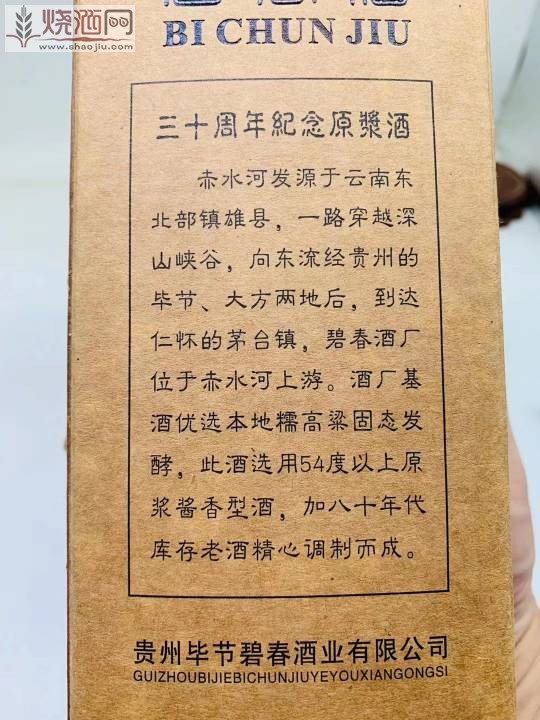 烧酒网
www.shaojiu.com
BI CHUN JIU
三十周年紀念原漿酒
赤水河发源于云南东
北部镇雄县，一路穿越深
山峡谷，向东流经贵州的
毕节、大方两地后，到达
仁怀的茅台镇，碧春酒厂
位于赤水河上游。酒厂基
酒优选本地糯高粱固态发
酵，此酒选用54度以上原
浆酱香型酒，加八十年代
库存老酒精心调制而成。
贵州毕节碧春酒业有限公司
GUIZHOUBIJIEBICHUNJIUYEYOUXIANGONGSI